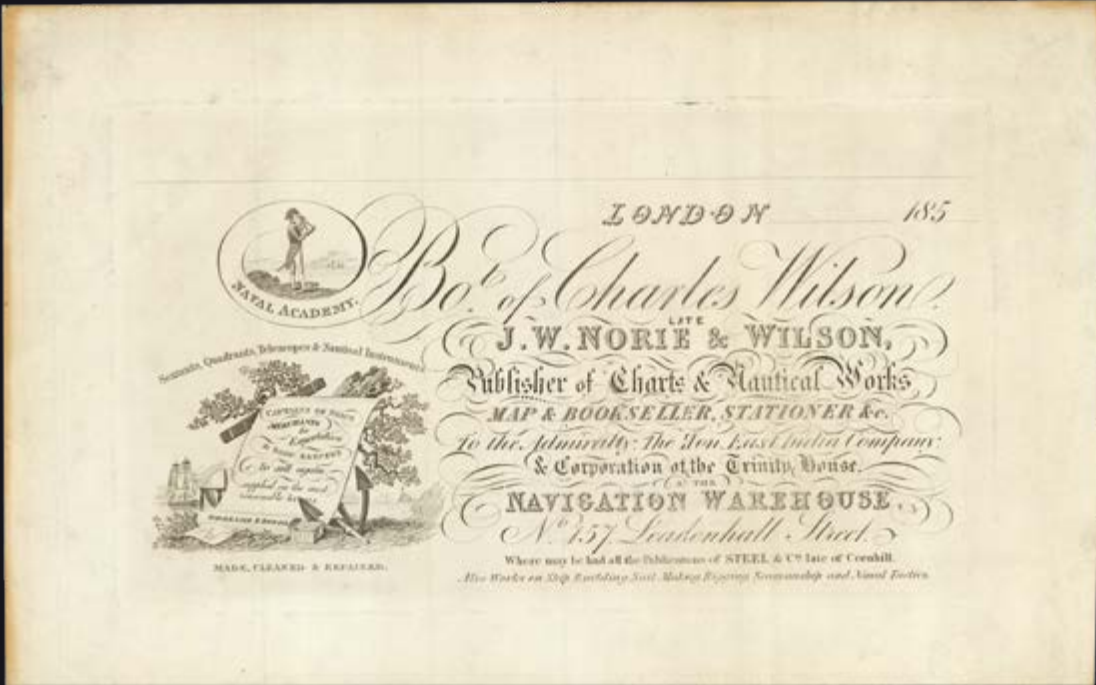 LONDON 185
Bot. of Charles Wilson.
LATE
J. W. NORIE & WILSON,
Publisher of Charts & Nautical Works
MAP & BOOKSELLER, STATIONER &c.
To the Admiralty; The Hon. East India Company;
& Corporation of the Trinity House.
AT THE
NAVIGATION WAREHOUSE,
No. 157 Leadenhall Street.
Where may be had all the Publications of STEEL & Co. late of Cornhill.
Also Works on Ship Building Sail Making Rigging Seamanship and Naval Tactics
NAVAL ACADEMY.
Sextants, Quadrants, Telescopes & Nautical Instruments
CAPTAINS OF SHIPS
MERCHANTS
for
Exportation
to sell again
supplied on the most
reasonable terms
MADE, CLEANED & REPAIRED.